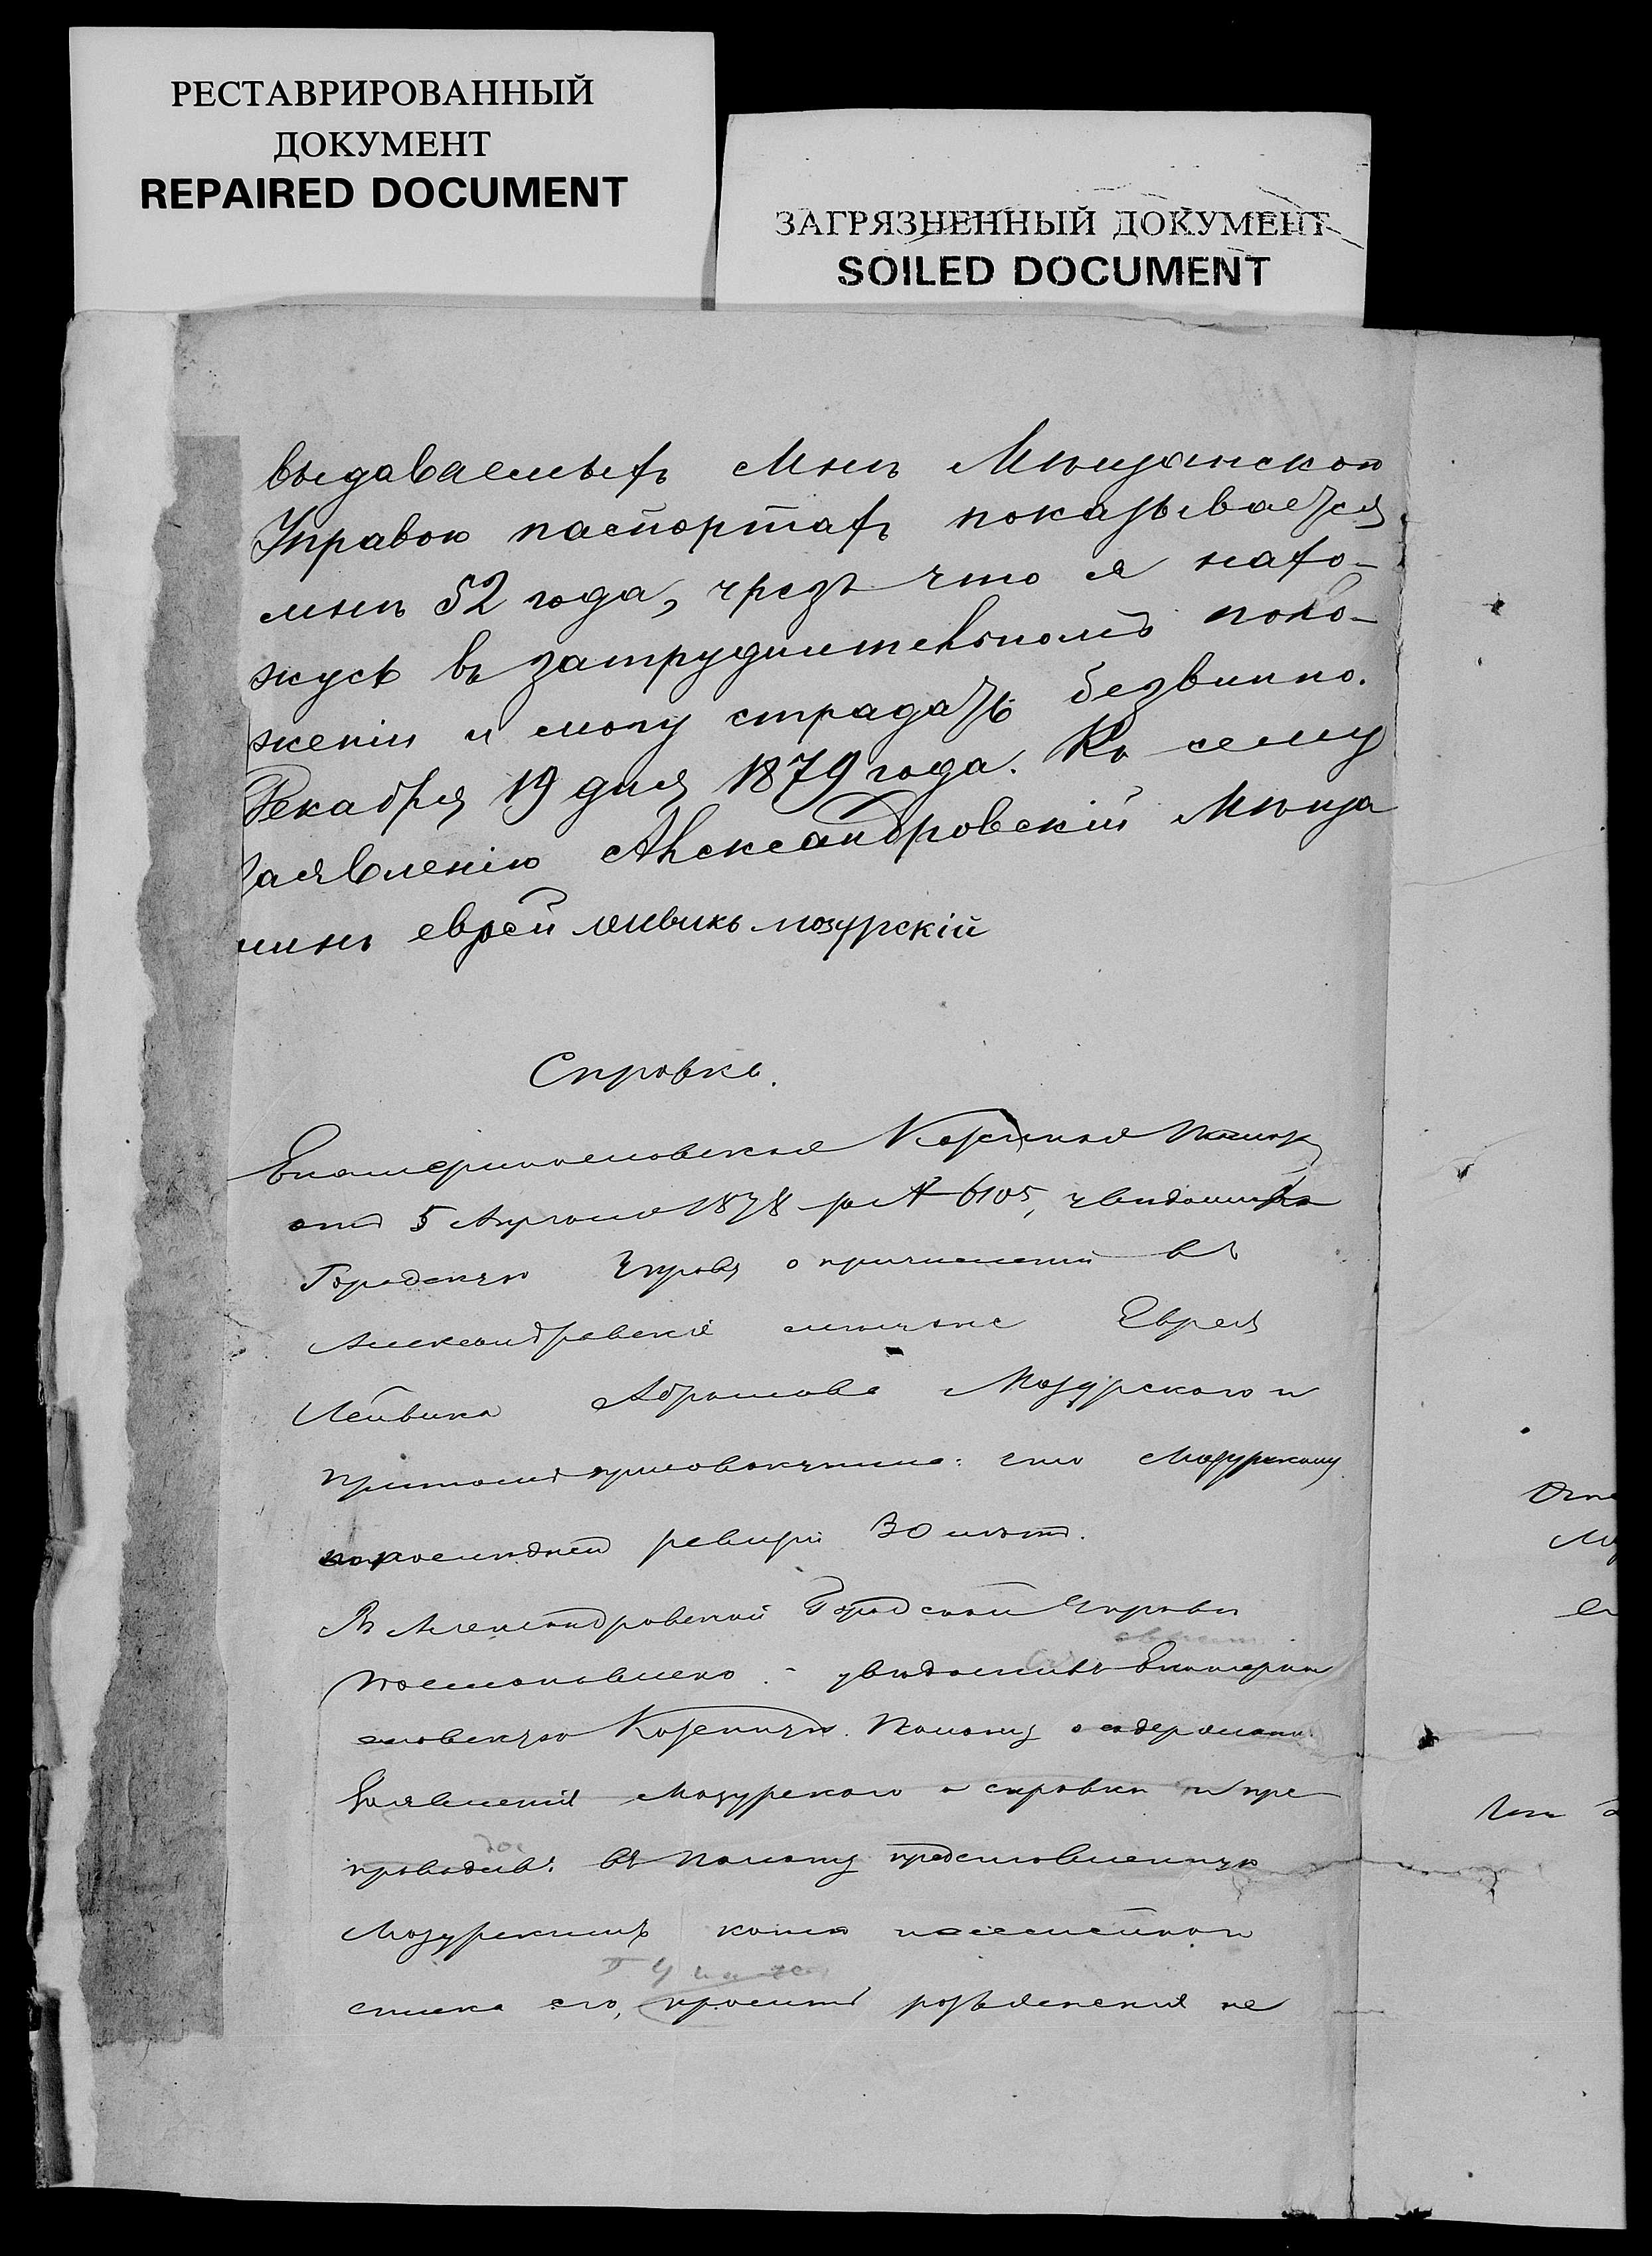 РЕСТАВРИРОВАННЫЙ
ДОКУМЕНТ
REPAIRED DOCUMENT
ЗАГРЯЗНЕННЫЙ ДОКУМЕНТ
SOILED DOCUMENT
выдаваемыхъ мнѣ Мѣщанскою
Управою паспортахъ показывается
мнѣ 52 года, чрезъ что я нахо-
жусь въ затруднительномъ поло-
женіи и могу страдать безвинно.
Декабря 19 дня 1879 года. Къ сему
Заявленію Александровскій Мѣща
нинъ еврей лейвикъ мозурскій
Справка.
Екатеринославская Казенная Палата
отъ 5 Апрѣля 1878 за № 6105, увѣдомила
Городскую Управу о причисленіи въ
Александровскіе мѣщане Еврея
Лейвика Абрамова Мозурского и
притомъ присовокупила: что Мозурскому
по послѣдней ревизіи 30 лѣтъ.
Въ Александровской Городской Управѣ
постановлено: увѣдомивъ Екатерино
славскую Казенную Палату о содержаніи
Заявленія Мозурского и справки и пре
проводивъ въ Палату представленную
Мозурскимъ копію посемейного
списка его, просить разъясненія не